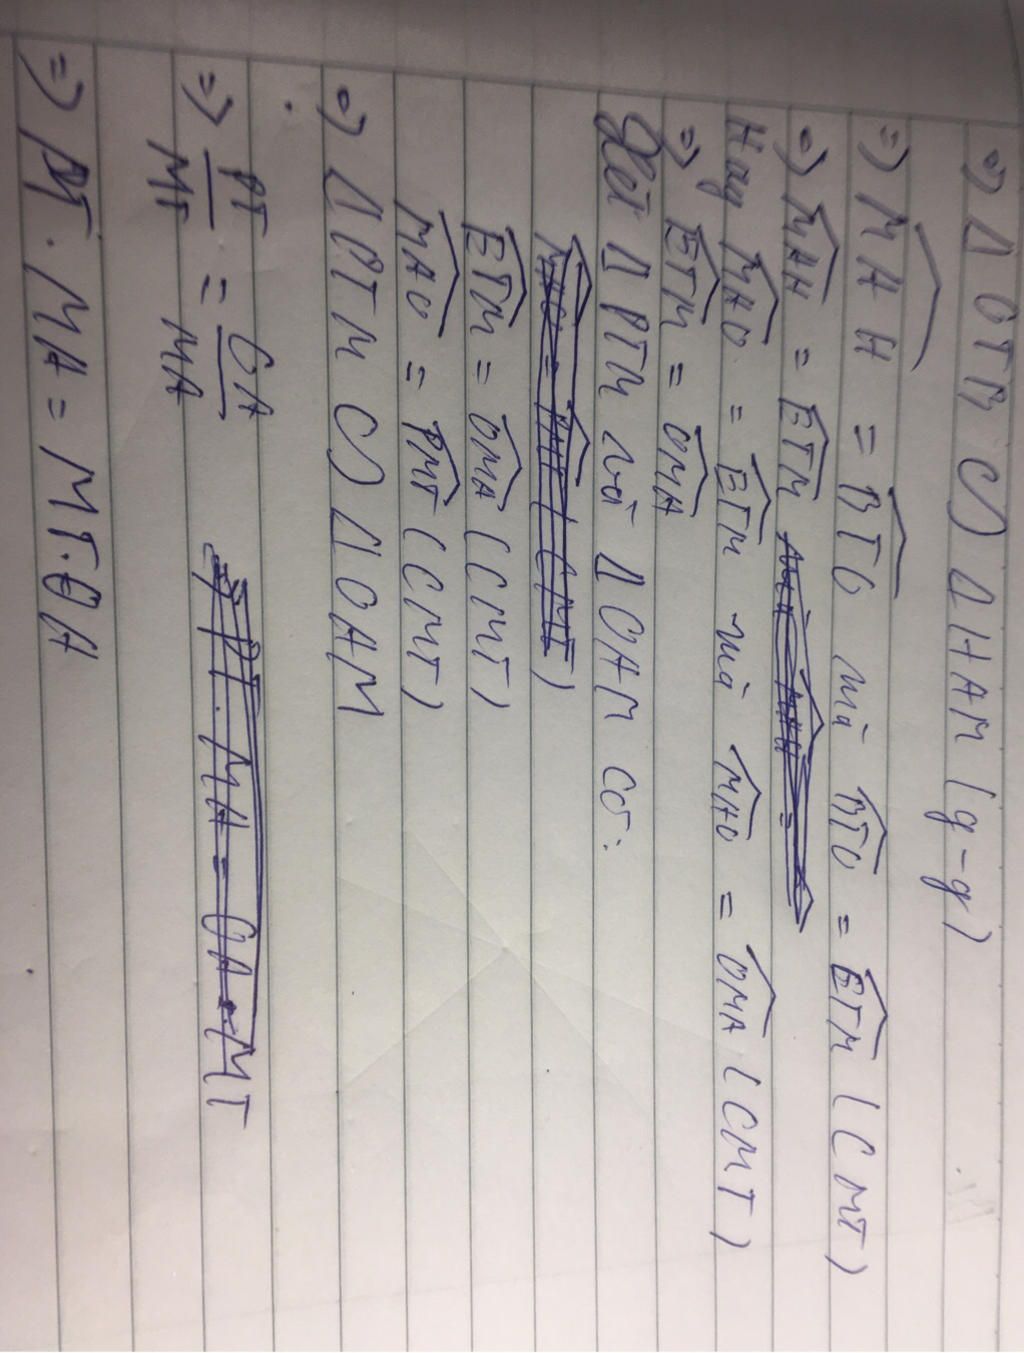 => Δ OTM ∽ Δ HAM (g-g)
=> \widehat{MAH} = \widehat{BTO} mà \widehat{BTO} = \widehat{ETM} (CMT)
=> \widehat{MAH} = \widehat{ETM}
Hay \widehat{MAO} = \widehat{ETM} mà \widehat{MAO} = \widehat{OMA} (CMT)
=> \widehat{ETM} = \widehat{OMA}
Xét Δ PTM và Δ OAM có:
\widehat{ETM} = \widehat{OMA} (CMT)
\widehat{MAO} = \widehat{PMT} (CMT)
=> Δ PTM ∽ Δ OAM
=> PT/MT = OA/MA
=> PT. MA = OA. MT
=> PT. MA = MT. OA